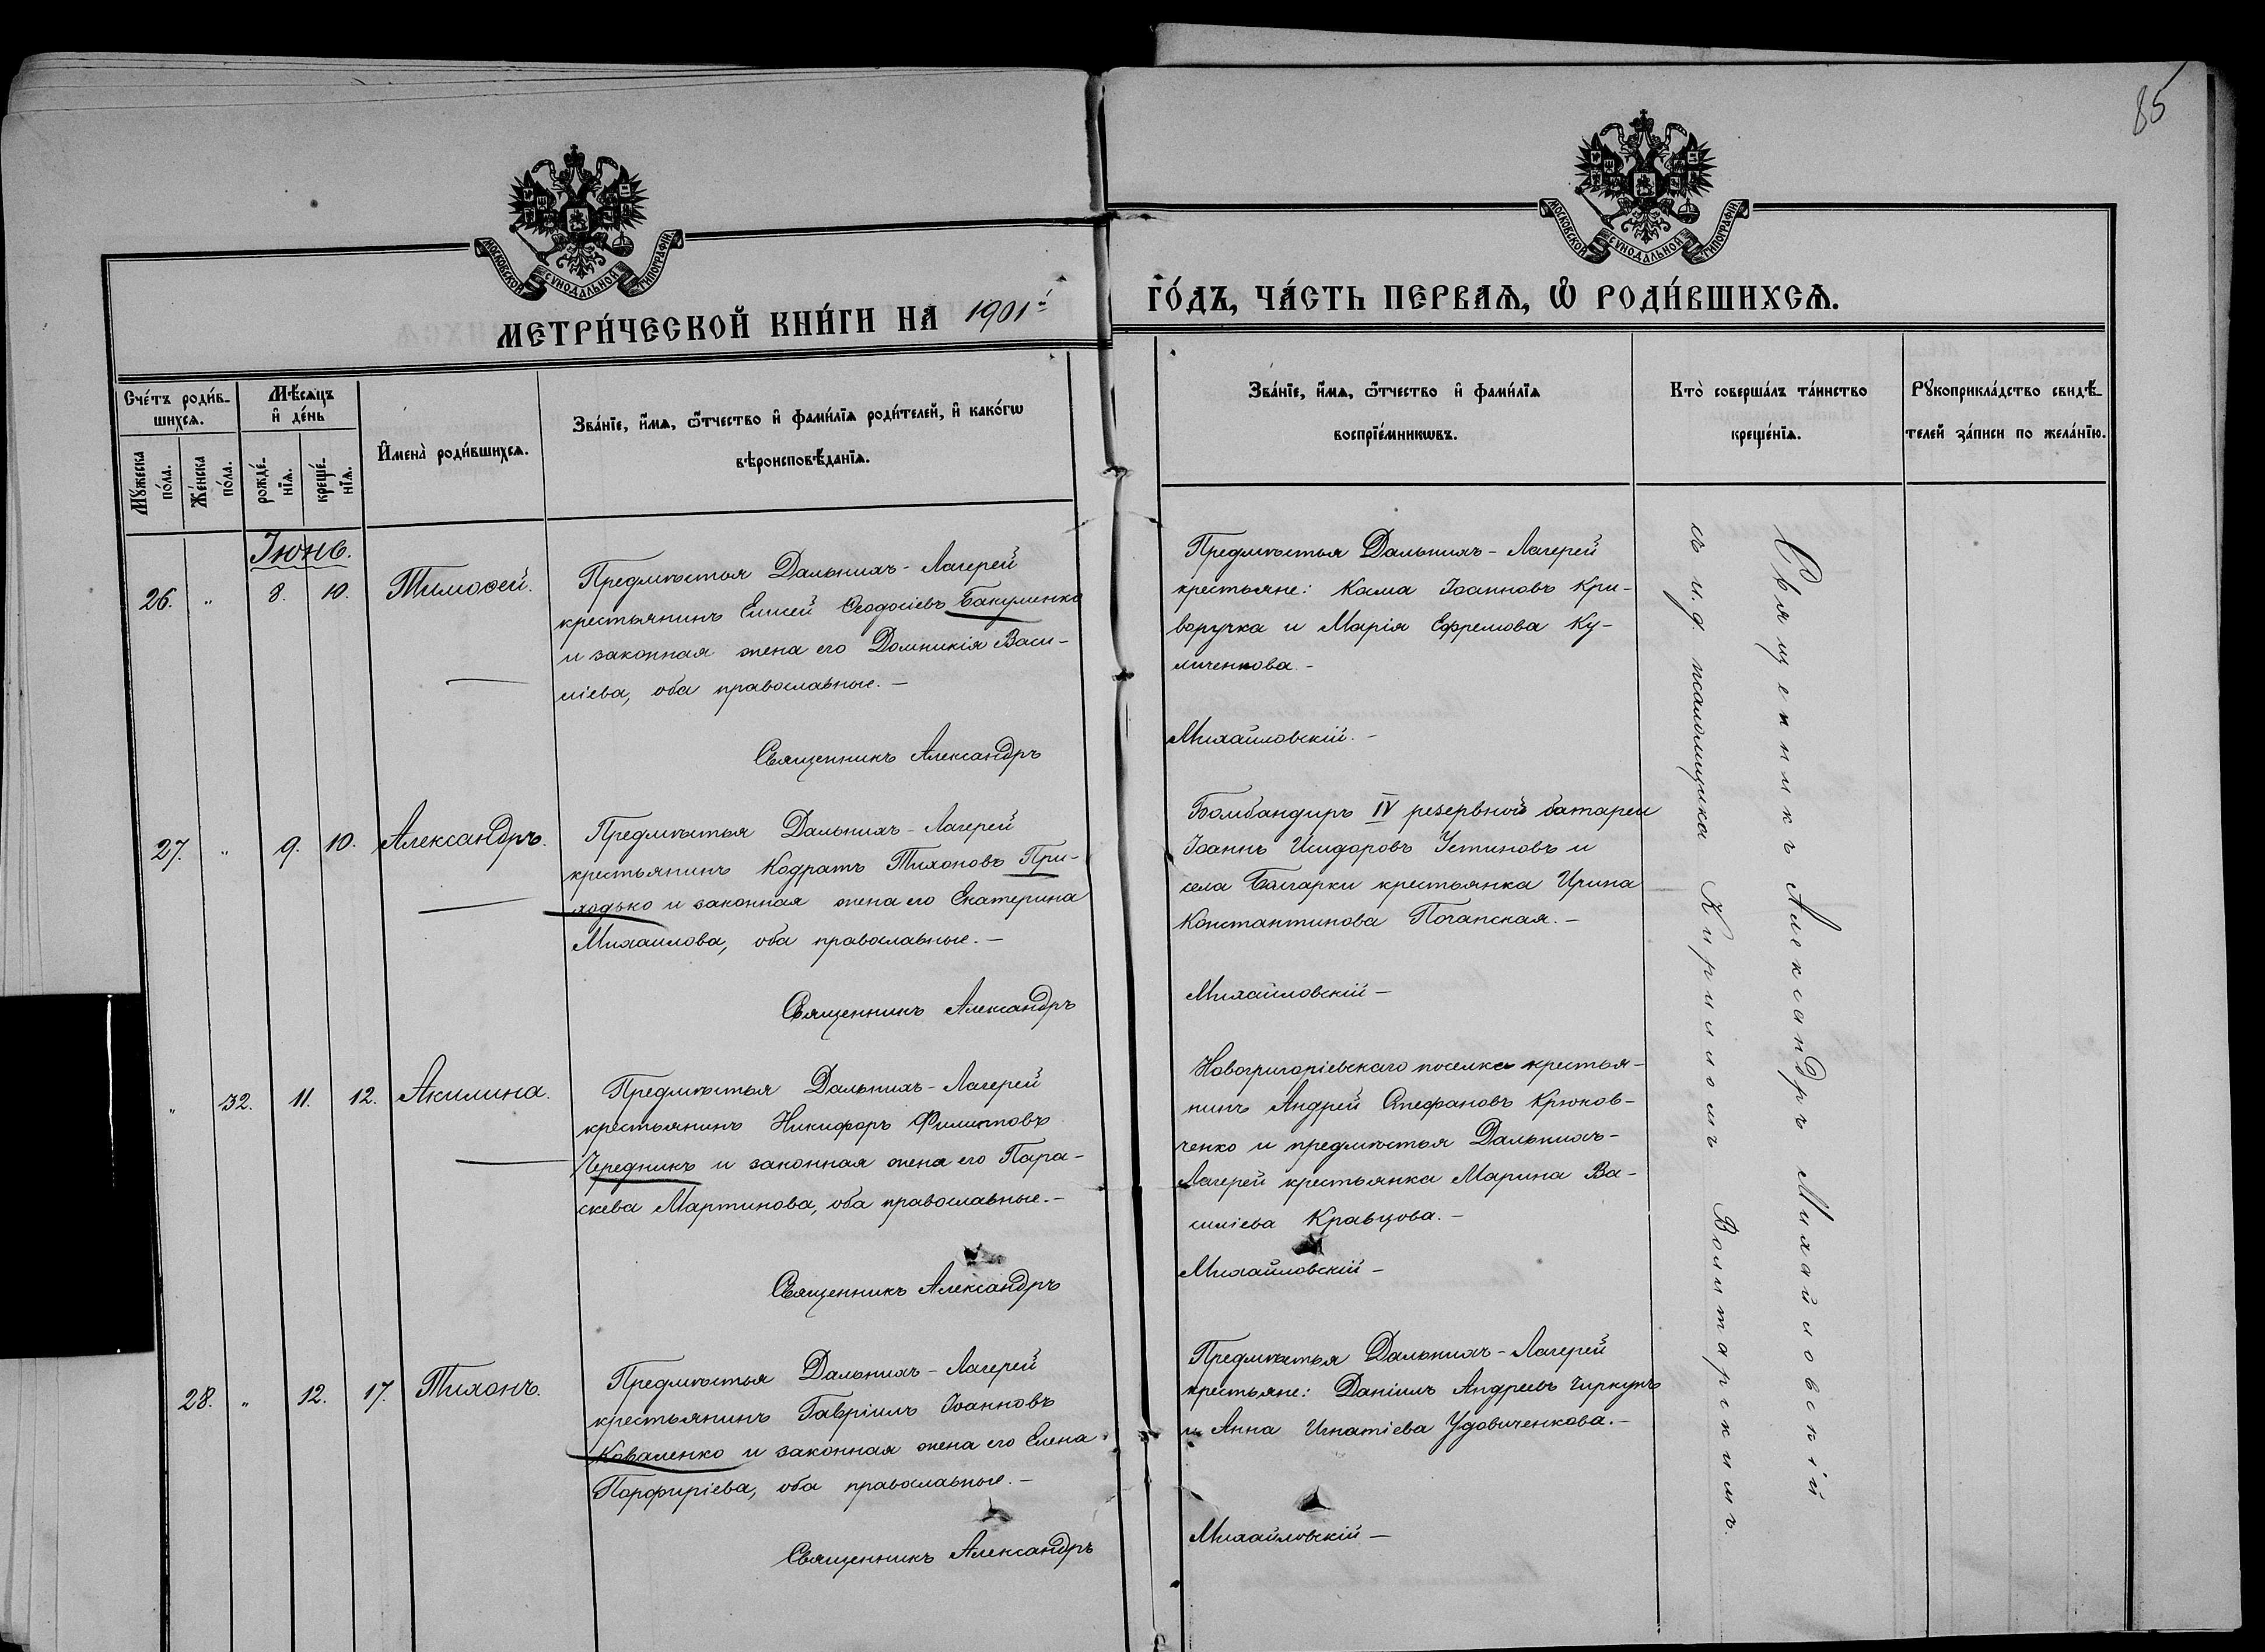 85
МОСКОВСКОЙ СѴНОДАЛЬНОЙ ТИПОГРАФІИ
МОСКОВСКОЙ СѴНОДАЛЬНОЙ ТИПОГРАФІИ
МЕТРИ́ЧЕСКОЙ КНИ́ГИ НА 1901й
ГО́ДЪ, ЧА́СТЬ ПЕРВАѦ, Ѽ РОДИ́ВШИХСѦ.
Сче́тъ роди́в-
шихсѧ.
Мꙋ́жеска
по́ла.
Же́нска
по́ла.
Мѣ́сѧцъ
и҆ де́нь
рожде́-
нїѧ.
креще́-
нїѧ.
И҆мена̀ роди́вшихсѧ.
Зва́нїе, и҆́мѧ, ѻ҆́тчество и҆ фами́лїѧ роди́телей, и҆ како́гѡ
вѣроисповѣ́данїѧ.
Зва́нїе, и҆́мѧ, ѻ҆́тчество и҆ фами́лїѧ
воспрїе́мникѡвъ.
Кто̀ соверша́лъ та́инство
креще́нїѧ.
Рꙋкоприкла́дство свидѣ́-
телей за́писи по жела́нїю.
Іюнь.
26. " 8. 10. Тимоѳей.
Предмѣстья Дальнихъ-Лагерей
крестьянинъ Елисей Ѳеодосіевъ Бакуменко
и законная жена его Домникія Васи-
ліева, оба православные.-
Священникъ Александръ
Предмѣстья Дальнихъ-Лагерей
крестьяне: Козма Іоанновъ Кри-
воручка и Марія Ефремова Ку-
личенкова.-
Михайловскій.-
27. " 9. 10. Александръ.
Предмѣстья Дальнихъ-Лагерей
крестьянинъ Кодратъ Тихоновъ При-
ходько и законная жена его Екатерина
Михаилова, оба православные.-
Священникъ Александръ
Бомбандиръ IV резервной батареи
Іоаннъ Исидоровъ Устиновъ и
села Болгарки крестьянка Ирина
Константинова Почапская.-
Михайловскій-
" 32. 11. 12. Акилина.
Предмѣстья Дальнихъ-Лагерей
крестьянинъ Никифоръ Филипповъ
Чередникъ и законная жена его Пара-
скева Мартинова, оба православные.-
Священникъ Александръ
Новогригоріевскаго поселка крестья-
нинъ Андрей Стефановъ Крюков-
ченко и предмѣстья Дальнихъ-
Лагерей крестьянка Марина Ва-
силіева Кравцова.-
Михайловскій-
28. " 12. 17. Тихонъ.
Предмѣстья Дальнихъ-Лагерей
крестьянинъ Гавріилъ Іоанновъ
Коваленко и законная жена его Елена
Порфиріева, оба православные.-
Священникъ Александръ
Предмѣстья Дальнихъ-Лагерей
крестьяне: Даніилъ Андреевъ Чиркунъ
и Анна Игнатіева Удовиченкова.-
Михайловскій-
Священникъ Александръ Михайловскій
съ и.д псаломщика Кирилломъ